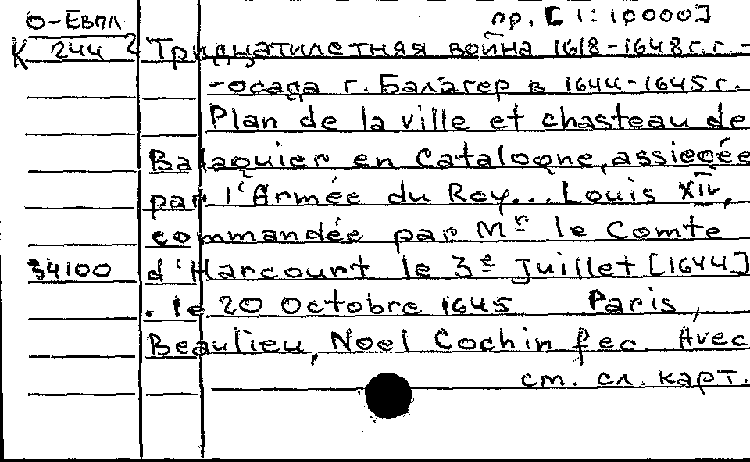 О-Евпл пр. [1:10000]
К 244 2 Тридцатилетная война 1618-1648 г.г. -
- осада г. Балагер в 1644-1645 г.
Plan de la ville et chasteau de
Balaguier en Catalogne, assiegée
par l'Armée du Roy... Louis XIV,
commandée par Mr le Comte
34100 d'Harcourt le 3e Juillet [1644]
. le 20 Octobre 1645 Paris,
Beaulieu, Noel Cochin fec. Avec
см. сл. карт.